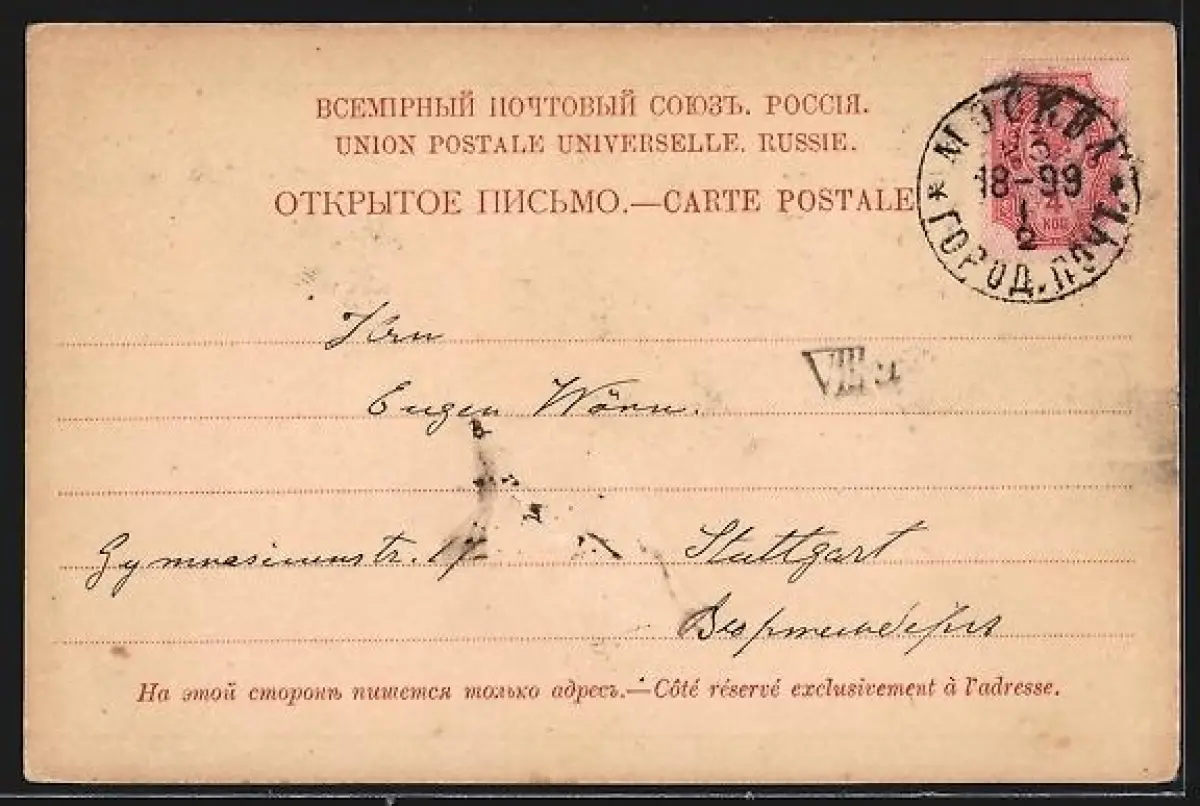 ВСЕМІРНЫЙ ПОЧТОВЫЙ СОЮЗЪ. РОССІЯ.
UNION POSTALE UNIVERSELLE. RUSSIE.
ОТКРЫТОЕ ПИСЬМО.—CARTE POSTALE
МОСКВА
18-99
I
2
ГОРОД. ПОЧТ.
4
КОП
Hrn
VIII
Eugen Wörn.
Gymnasiumstr. 17
Stuttgart
На этой сторонѣ пишется только адресъ.—Côté réservé exclusivement à l'adresse.